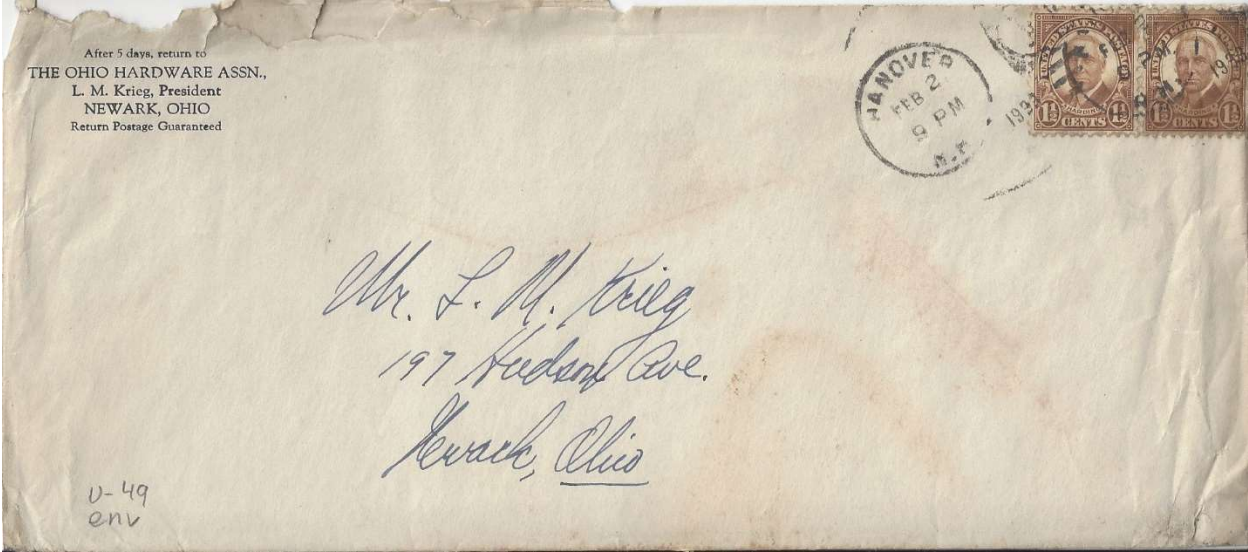 After 5 days, return to
THE OHIO HARDWARE ASSN.,
L. M. Krieg, President
NEWARK, OHIO
Return Postage Guaranteed
HANOVER
FEB 2
9 PM
UNITED STATES POSTAGE
HARDING
1½ CENTS 1½
UNITED STATES POSTAGE
1½ CENTS 1½
Mr. L. M. Krieg
197 Hudson Ave.
Newark, Ohio
U-49
env